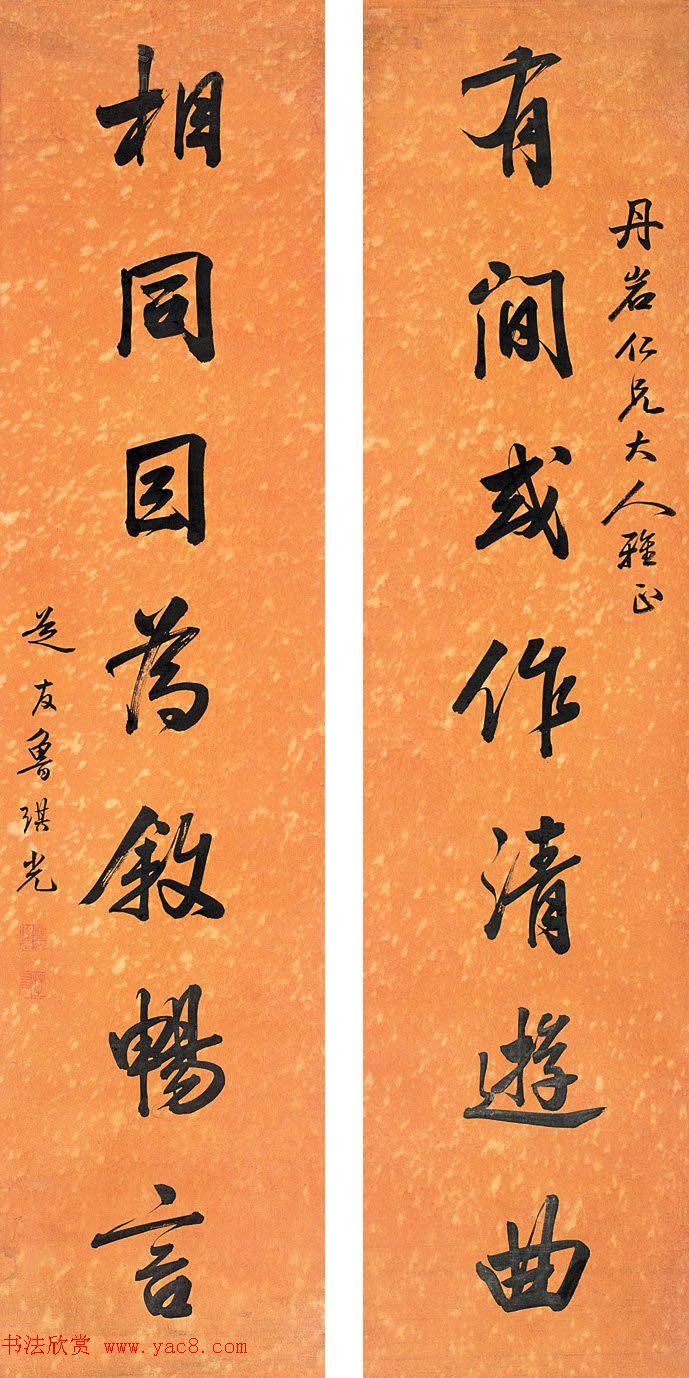 丹岩仁兄大人雅正
有間或作清遊曲
相同因為敘暢言
芝友魯琪光
书法欣赏 www.yac8.com